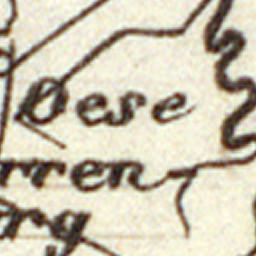 Oese
rren
rg